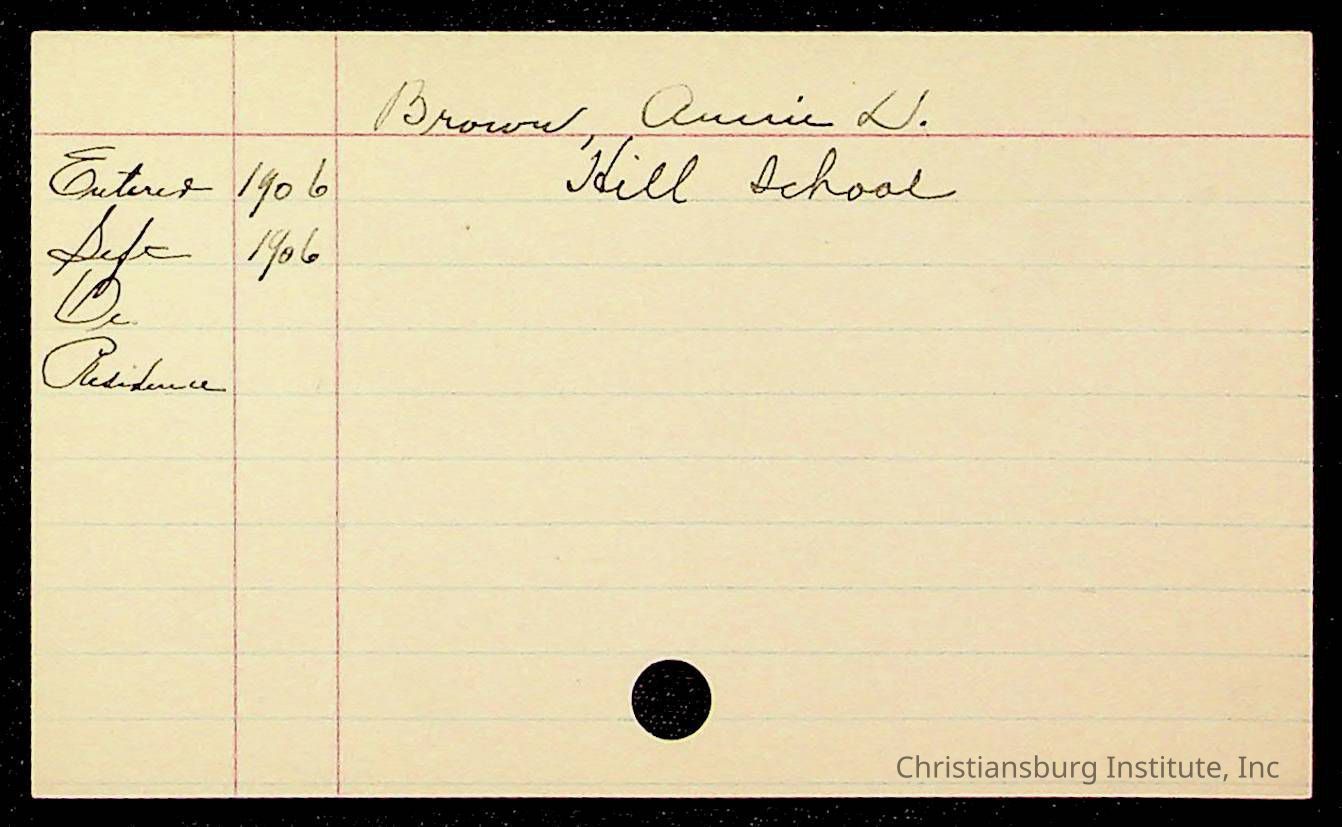 Brown, Annie L.
Entered 1906 Hill School
Left 1906
Residence
Christiansburg Institute, Inc